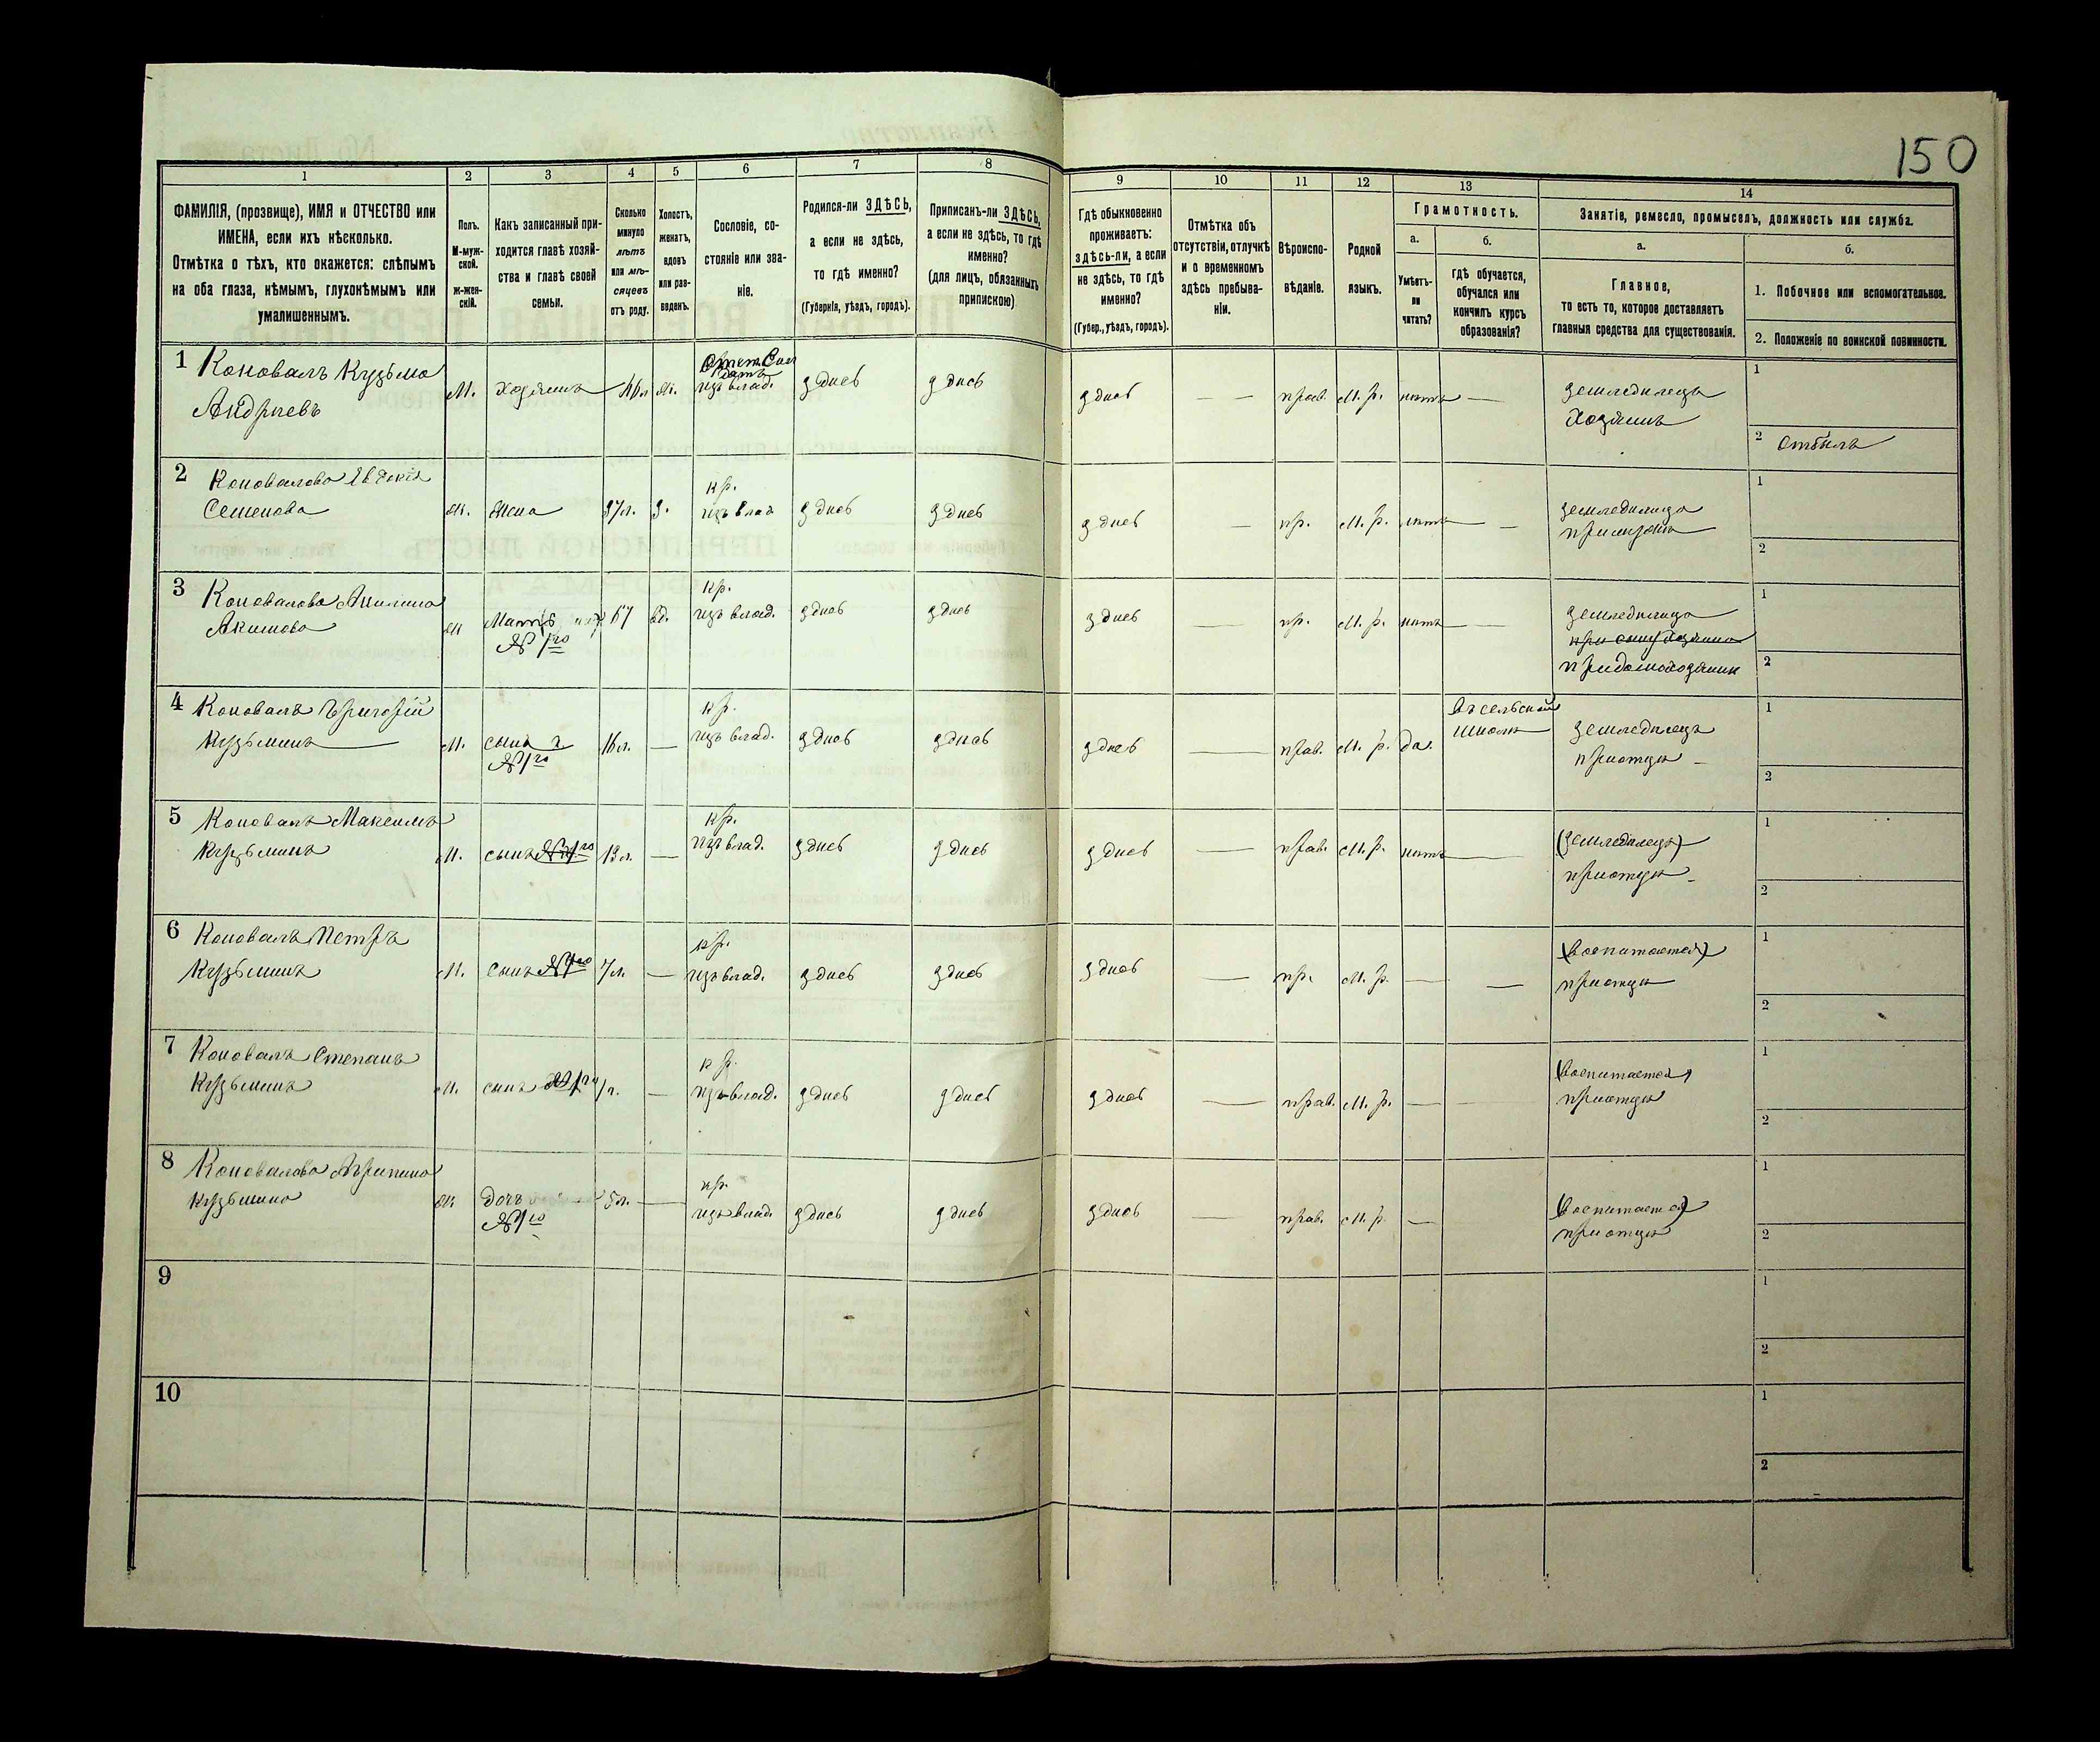 150
1 2 3 4 5 6 7 8 9 10 11 12 13 14
ФАМИЛІЯ, (прозвище), ИМЯ и ОТЧЕСТВО или
ИМЕНА, если ихъ нѣсколько.
Отмѣтка о тѣхъ, кто окажется: слѣпымъ
на оба глаза, нѣмымъ, глухонѣмымъ или
умалишеннымъ.
Полъ.
М-муж-
ской.
ж-жен-
скій.
Какъ записанный при-
ходится главѣ хозяй-
ства и главѣ своей
семьи.
Сколько
минуло
лѣтъ
или мѣ-
сяцевъ
отъ роду.
Холостъ,
женатъ,
вдовъ
или раз-
веденъ.
Сословіе, со-
стояніе или зва-
ніе.
Родился-ли ЗДѢСЬ,
а если не здѣсь,
то гдѣ именно?
(Губернія, уѣздъ, городъ).
Приписанъ-ли ЗДѢСЬ,
а если не здѣсь, то гдѣ
именно?
(для лицъ, обязанныхъ
припискою)
Гдѣ обыкновенно
проживаетъ:
здѣсь-ли, а если
не здѣсь, то гдѣ
именно?
(Губер., уѣздъ, городъ).
Отмѣтка объ
отсутствіи, отлучкѣ
и о временномъ
здѣсь пребыва-
ніи.
Вѣроиспо-
вѣданіе.
Родной
языкъ.
Грамотность.
а.
Умѣетъ-
ли
читать?
б.
гдѣ обучается,
обучался или
кончилъ курсъ
образованія?
Занятіе, ремесло, промыселъ, должность или служба.
а.
Главное,
то есть то, которое доставляетъ
главныя средства для существованія.
б.
1. Побочное или вспомогательное.
2. Положеніе по воинской повинности.
1 Коновалъ Кузьма
Андріевъ
М. хозяинъ ж. изъ влад. здѣсь здѣсь здѣсь — — прав. М. р. нѣтъ —
земледѣлецъ
хозяинъ
1
2 отбылъ
2 Коновалова Евдокія
Семенова
ж. жена 37л. з. кр.
изъ влад здѣсь здѣсь здѣсь — пр. М. р. нѣтъ —
земледѣлица
при мужѣ
1
2
3 Коновалова
Акимова
ж Мать
№ 1го
67 вд. кр.
изъ влад. здѣсь здѣсь здѣсь — пр. М. р. нѣтъ —
земледѣлица
при домохозяинѣ
1
2
4 Коновалъ Григорій
Кузьминъ
М. сынъ
№ 1го
16л. — кр.
изъ влад. здѣсь здѣсь здѣсь — прав. М. р. да.
въ сельской
школѣ
земледѣлецъ
при отцѣ
1
2
5 Коновалъ Максимъ
Кузьминъ
М. сынъ № 1го 13л. — кр.
изъ влад. здѣсь здѣсь здѣсь — прав. М. р. нѣтъ —
(земледѣлецъ)
при отцѣ
1
2
6 Коновалъ Петръ
Кузьминъ
М. сынъ № 1го 7л. — кр.
изъ влад. здѣсь здѣсь здѣсь — пр. М. р. — —
(воспитается)
при отцѣ
1
2
7 Коновалъ Степанъ
Кузьминъ
М. сынъ № 1го 1л. — кр.
изъ влад. здѣсь здѣсь здѣсь — прав. М. р. —
(воспитается)
при отцѣ
1
2
8 Коновалова
Кузьмина
ж. дочь
№ 1го
5л. — кр.
изъ влад. здѣсь здѣсь здѣсь — прав. М. р. —
(воспитается)
при отцѣ
1
2
9
1
2
10
1
2